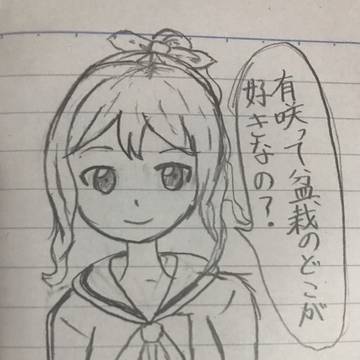 有咲って盆栽のどこが
好きなの？